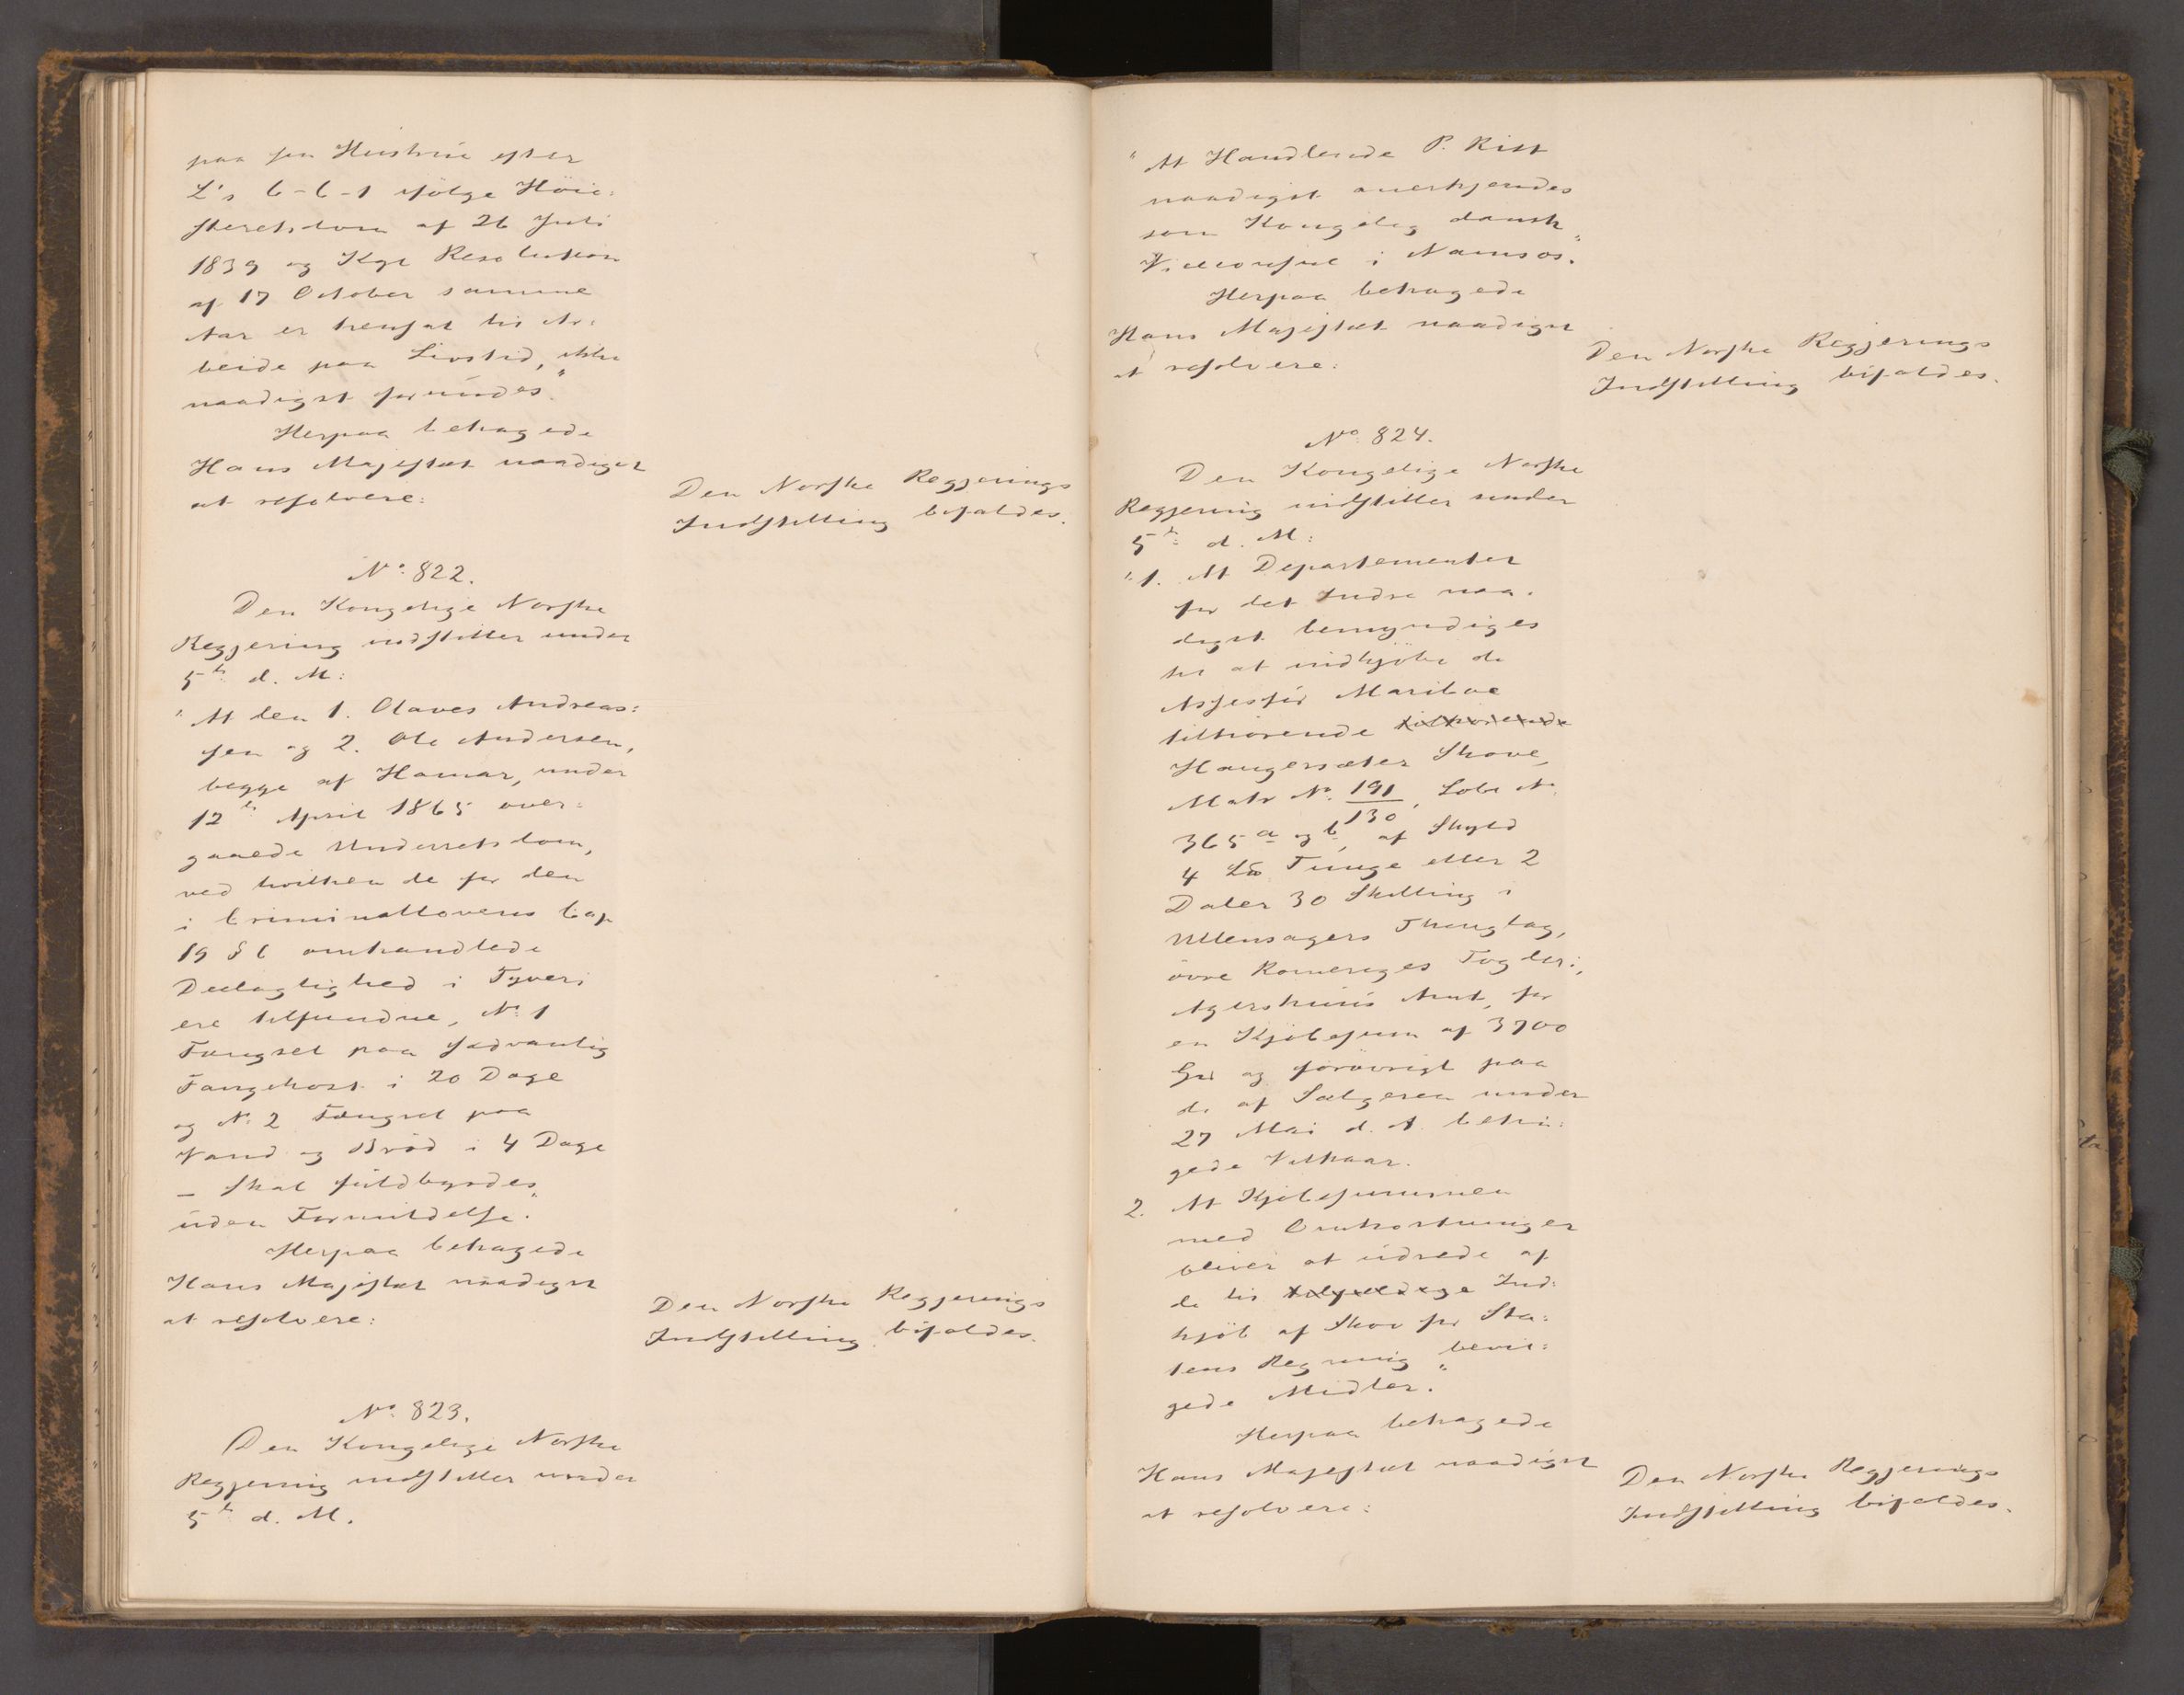 paa sin Hustrue efter
L's 6-6-1 ifølge Høie:
steretsdom af 26 Juli
1839 og Kgl Resolution
af 17 October samme
Aar er hensat til Ar:
beide paa Livstid, ikke
naadigst forundes."
Herpaa behagede
Hans Majestæt naadigst
at resolvere:
Den Norske Regjerings
Indstilling bifaldes.
No. 822.
Den Kongelige Norske
Regjering indstiller under
5te d. M:
"At den 1. Olaves Andreas:
sen og 2. Ole Andersen,
begge af Hamar, under
12te April 1865 over:
gaaede Underretsdom,
ved hvilken de for den
i Criminallovens Cap
19 § 6 omhandlede
Deelagtighed i Tyveri
ere tilfundne, No 1
Fængsel paa sædvanlig
Fangekost i 20 Dage
og No. 2 Fængsel paa
Vand og Brød i 4 Dage
– skal fuldbyrdes
uden Formildelse."
Herpaa behagede
Hans Majestæt naadigst
at resolvere:
Den Norske Regjerings
Indstilling bifaldes.
No. 823.
Den Kongelige Norske
Regjering indstiller under
5te d. M.
"At Handlende P. Rist
naadigst anerkjendes
som Kongelig dansk
Viceconsul i Namsos."
Herpaa behagede
Hans Majestæt naadigst
at resolvere:
Den Norske Regjerings
Indstilling bifaldes.
No. 824.
Den Kongelige Norske
Regjering indstiller under
5te d. M:
"1. At Departementet
for det Indre naa:
digst bemyndiges
til at indkjøbe de
Assessor Mariboe
tilhørende tilhørende
Haugersæter Skove,
Matr No. 191/130, Løbe No
365 a og b, af Skyld
4 Tunge eller 2
Daler 30 Skilling i
Ullensagers Thinglag,
øvre Romeriges Fogderi,
Agershuus Amt, for
en Kjøbesum af 3700
Spd og forøvrigt paa
de af Sælgeren under
27 Mai d. A. betin:
gede Vilkaar.
2. At Kjøbesummen
med Omkostninger
bliver at udrede af
de til Ind:
kjøb af Skov for Sta:
tens Regning bevil:
gede Midler."
Herpaa behagede
Hans Majestæt naadigst
at resolvere:
Den Norske Regjerings
Indstilling bifaldes.